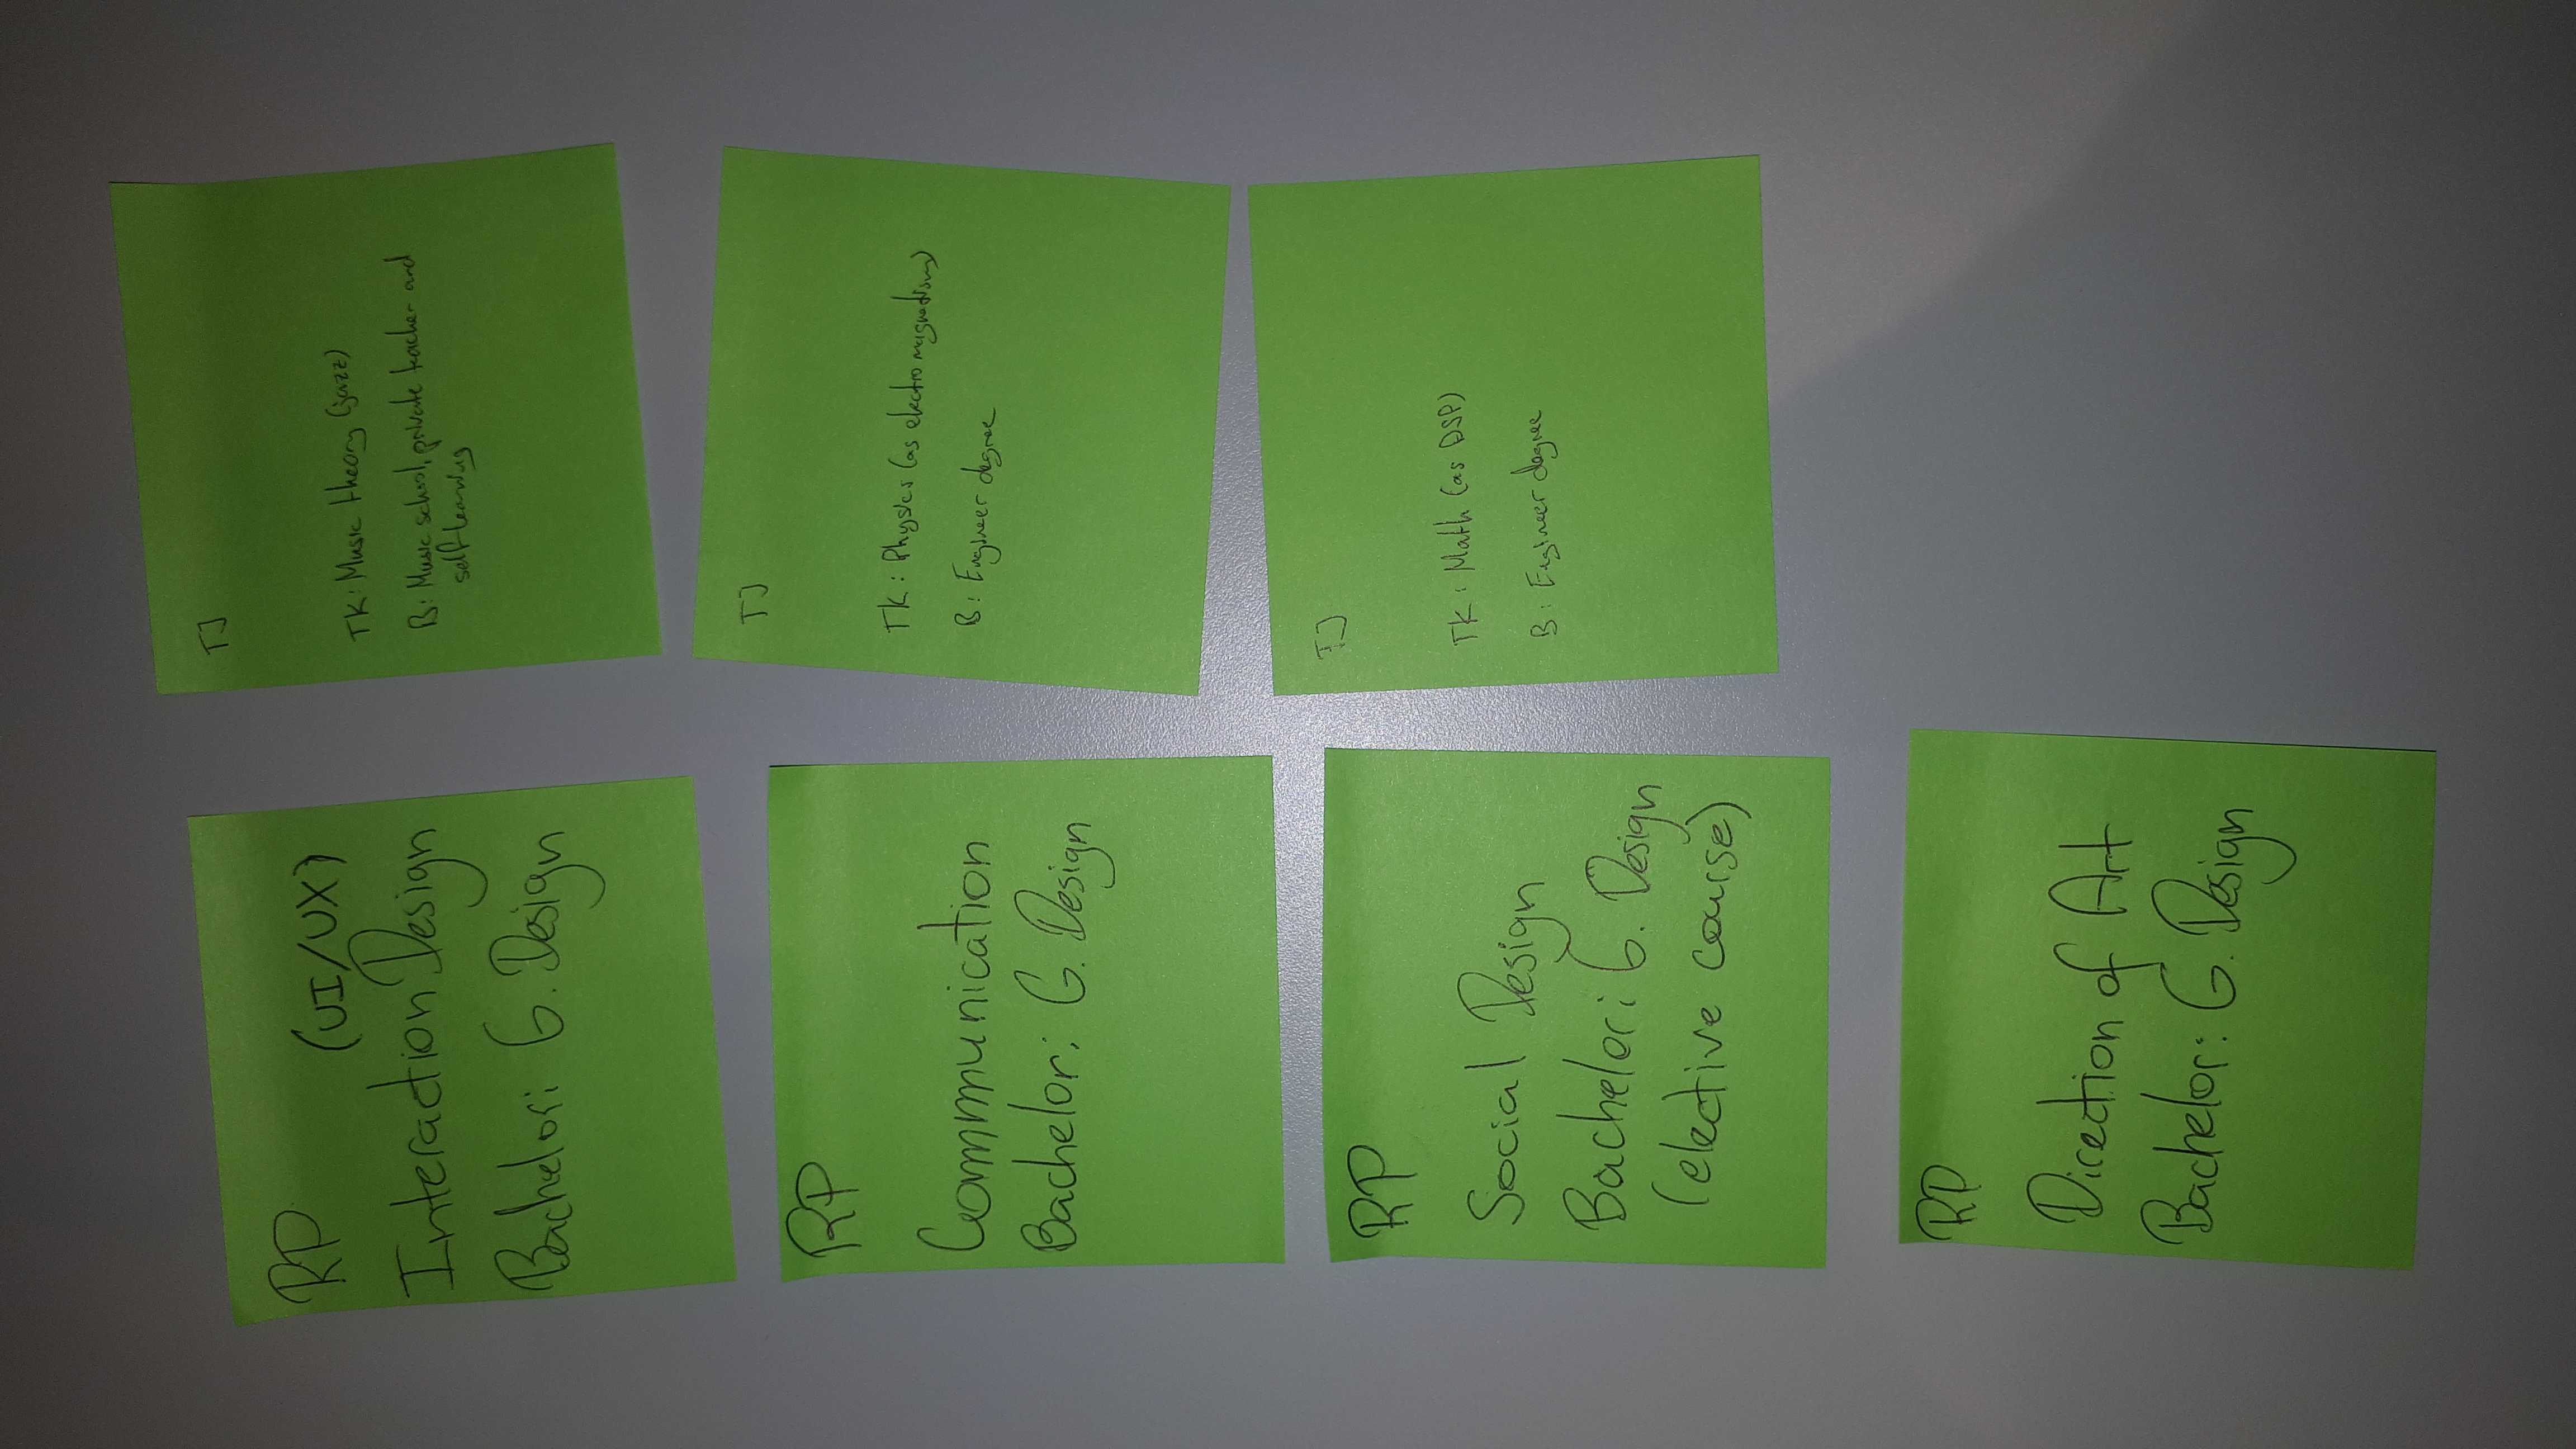 RP
(UI/UX)
Interaction Design
Bachelor: G. Design
RP
Communication
Bachelor: G. Design
RP
Social Design
Bachelor: G. Design
(elective course)
RP
Direction of Art
Bachelor: G. Design
TJ
TK: Music theory (jazz)
B: Music school, private teacher and
self learning
TJ
TK: Physics (as electro magnetism)
B: Engineer degree
TJ
TK: Math (as DSP)
B: Engineer degree